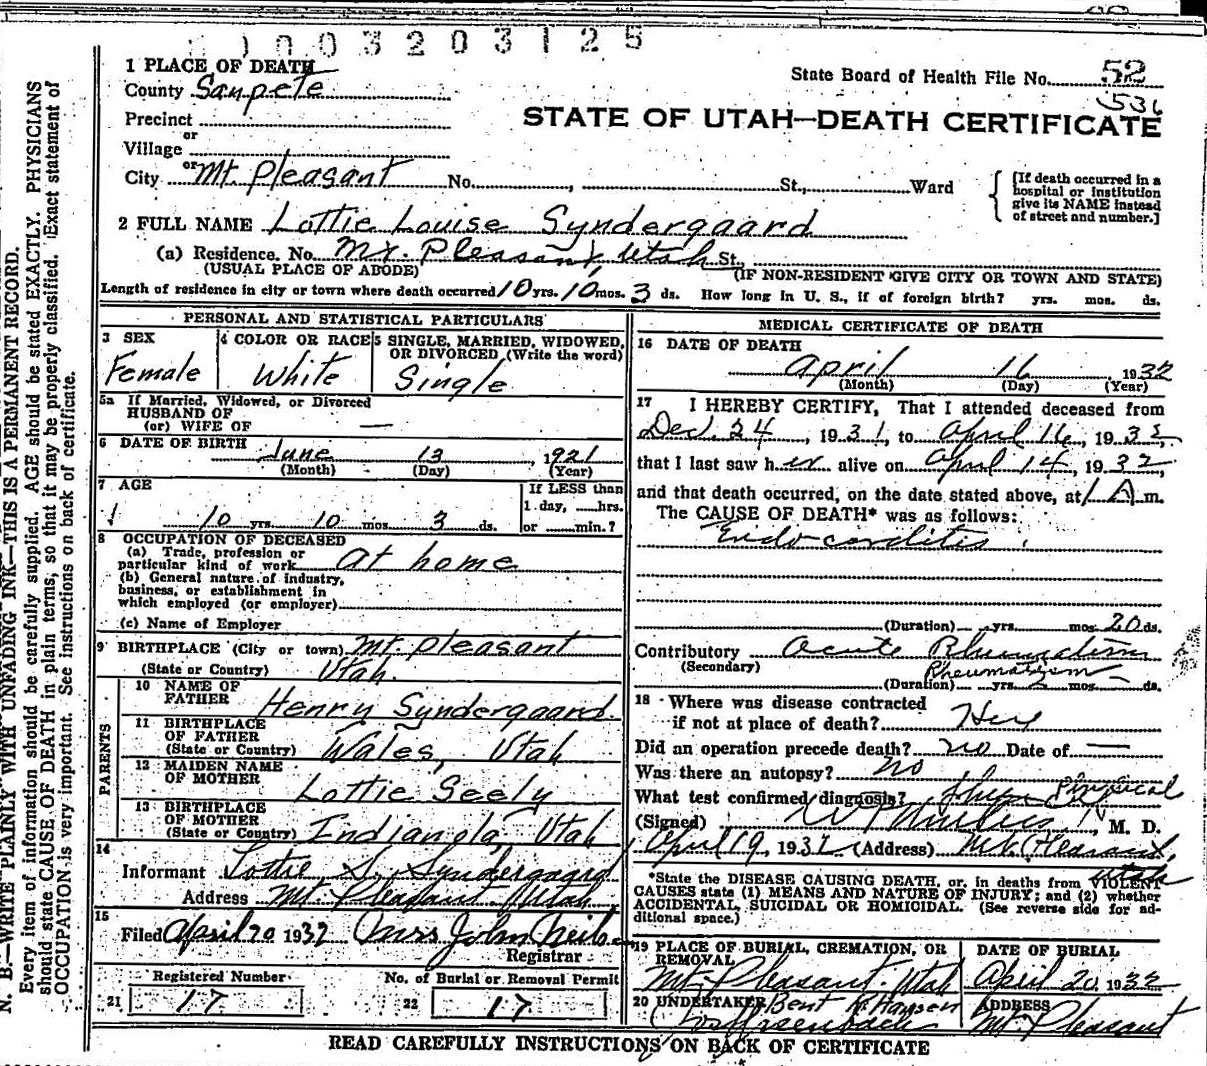 1003203125
1 PLACE OF DEATH
State Board of Health File No. 52
County Sanpete
536
Precinct
STATE OF UTAH—DEATH CERTIFICATE
or
Village
or
City Mt. Pleasant No. , St., Ward
[If death occurred in a hospital or institution give its NAME instead of street and number.]
2 FULL NAME Lottie Louise Syndergaard
(a) Residence. No. Mt. Pleasant, Utah St.,
(USUAL PLACE OF ABODE) (IF NON-RESIDENT GIVE CITY OR TOWN AND STATE)
Length of residence in city or town where death occurred 10 yrs. 10 mos. 3 ds. How long in U. S., if of foreign birth? yrs. mos. ds.
PERSONAL AND STATISTICAL PARTICULARS
3 SEX
Female
4 COLOR OR RACE
White
5 SINGLE, MARRIED, WIDOWED,
OR DIVORCED (Write the word)
Single
5a If Married, Widowed, or Divorced
HUSBAND OF
(or) WIFE OF —
6 DATE OF BIRTH
June 13, 1921
(Month) (Day) (Year)
7 AGE
10 yrs 10 mos 3 ds.
If LESS than
1 day, hrs.
or min.?
8 OCCUPATION OF DECEASED
(a) Trade, profession or
particular kind of work at home
(b) General nature of industry,
business, or establishment in
which employed (or employer)
(c) Name of Employer
9 BIRTHPLACE (City or town) Mt. Pleasant
(State or Country) Utah.
PARENTS
10 NAME OF
FATHER Henry Syndergaard.
11 BIRTHPLACE
OF FATHER
(State or Country) Wales, Utah
12 MAIDEN NAME
OF MOTHER Lottie Seely
13 BIRTHPLACE
OF MOTHER
(State or Country) Indianola, Utah
14
Informant Lottie S. Syndergaard
Address Mt. Pleasant Utah
15
Filed April 20 1932 Mrs John Neilson
Registrar
Registered Number
21 17
No. of Burial or Removal Permit
22 17
MEDICAL CERTIFICATE OF DEATH
16 DATE OF DEATH
April 16, 1932
(Month) (Day) (Year)
17 I HEREBY CERTIFY, That I attended deceased from
Dec. 24, 1931, to April 16, 1932,
that I last saw her alive on April 14, 1932,
and that death occurred, on the date stated above, at 1 A m.
The CAUSE OF DEATH* was as follows:
Endocarditis
(Duration) yrs. mos. 20 ds.
Contributory acute Rheumatism
(Secondary) Rheumatism
(Duration) yrs. mos. ds.
18 Where was disease contracted
if not at place of death?
Did an operation precede death? no Date of —
Was there an autopsy? no
What test confirmed diagnosis? Physical
(Signed) , M. D.
April 19, 1932 (Address) Mt. Pleasant,
Utah
*State the DISEASE CAUSING DEATH, or, in deaths from VIOLENT
CAUSES state (1) MEANS AND NATURE OF INJURY; and (2) whether
ACCIDENTAL, SUICIDAL OR HOMICIDAL. (See reverse side for ad-
ditional space.)
19 PLACE OF BURIAL, CREMATION, OR
REMOVAL
Mt. Pleasant. Utah
DATE OF BURIAL
April 20, 1932
20 UNDERTAKER Bent R Hansen
ADDRESS
Mt. Pleasant
READ CAREFULLY INSTRUCTIONS ON BACK OF CERTIFICATE
N. B.—WRITE PLAINLY WITH UNFADING INK—THIS IS A PERMANENT RECORD.
Every item of information should be carefully supplied. AGE should be stated EXACTLY. PHYSICIANS
should state CAUSE OF DEATH in plain terms, so that it may be properly classified. Exact statement of
OCCUPATION is very important. See instructions on back of certificate.